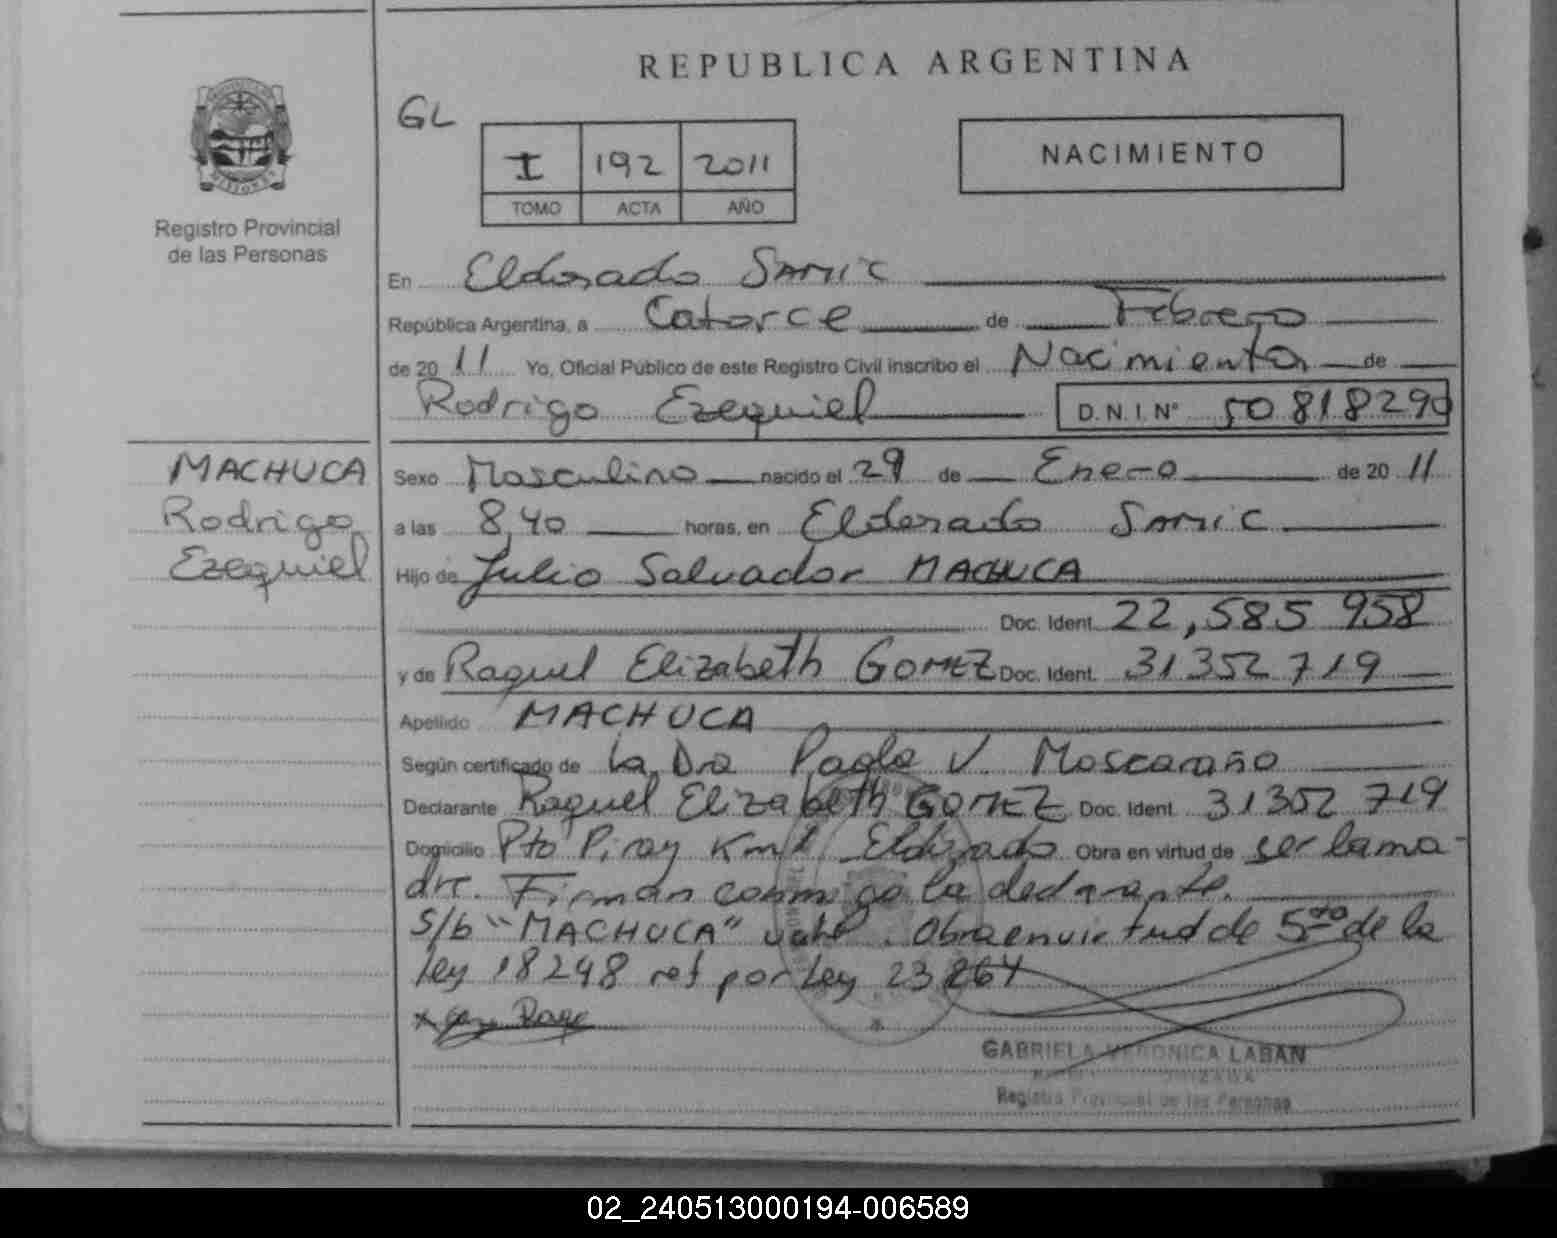 REPUBLICA ARGENTINA
GL
I 192 2011
TOMO ACTA AÑO
NACIMIENTO
Registro Provincial
de las Personas
En Eldorado SAMIC
República Argentina, a Catorce de Febrero
de 2011 Yo, Oficial Público de este Registro Civil inscribo el Nacimiento de
Rodrigo Ezequiel D.N.I. Nº 50818290
MACHUCA
Rodrigo
Ezequiel
Sexo Masculino nacido el 29 de Enero de 2011
a las 8,40 horas, en Eldorado SAMIC
Hijo de Julio Salvador MACHUCA
Doc. Ident. 22,585 958
y de Raquel Elizabeth GOMEZ Doc. Ident. 31352719
Apellido MACHUCA
Según certificado de la Dra Paola V. Moscaraño
Declarante Raquel Elizabeth GOMEZ Doc. Ident. 31352 719
Domicilio Pto Piray Km 1 Eldorado Obra en virtud de ser la ma-
dre. Firman conmigo la declarante.
S/b "MACHUCA" vale. Obra en virtud de 5to de la
ley 18248 ref por Ley 23264
GABRIELA VERONICA LABAN
Registro Provincial de las Personas
02_240513000194-006589